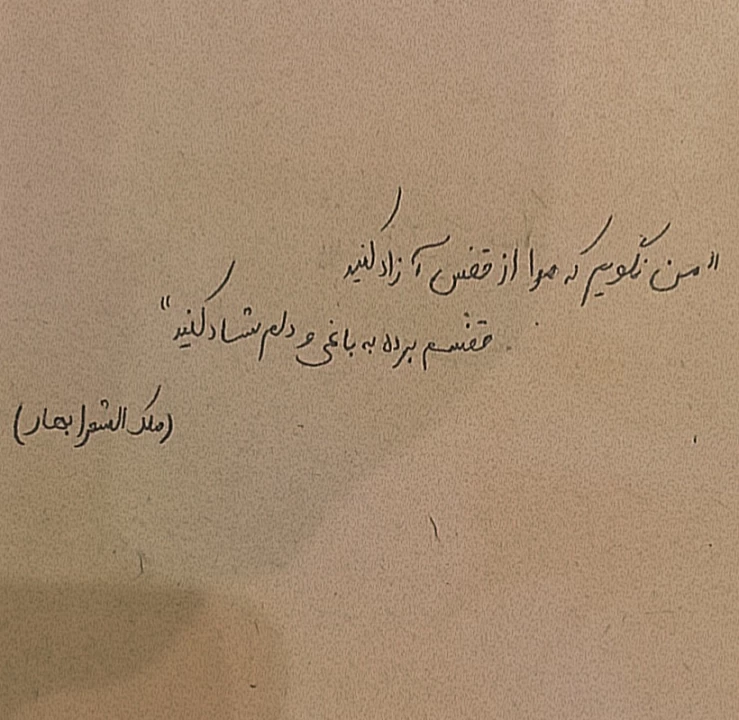 "من نگویم که مرا از قفس آزاد کنید
قفسم برده به باغی و دلم شاد کنید"
(ملک الشعرا بهار)